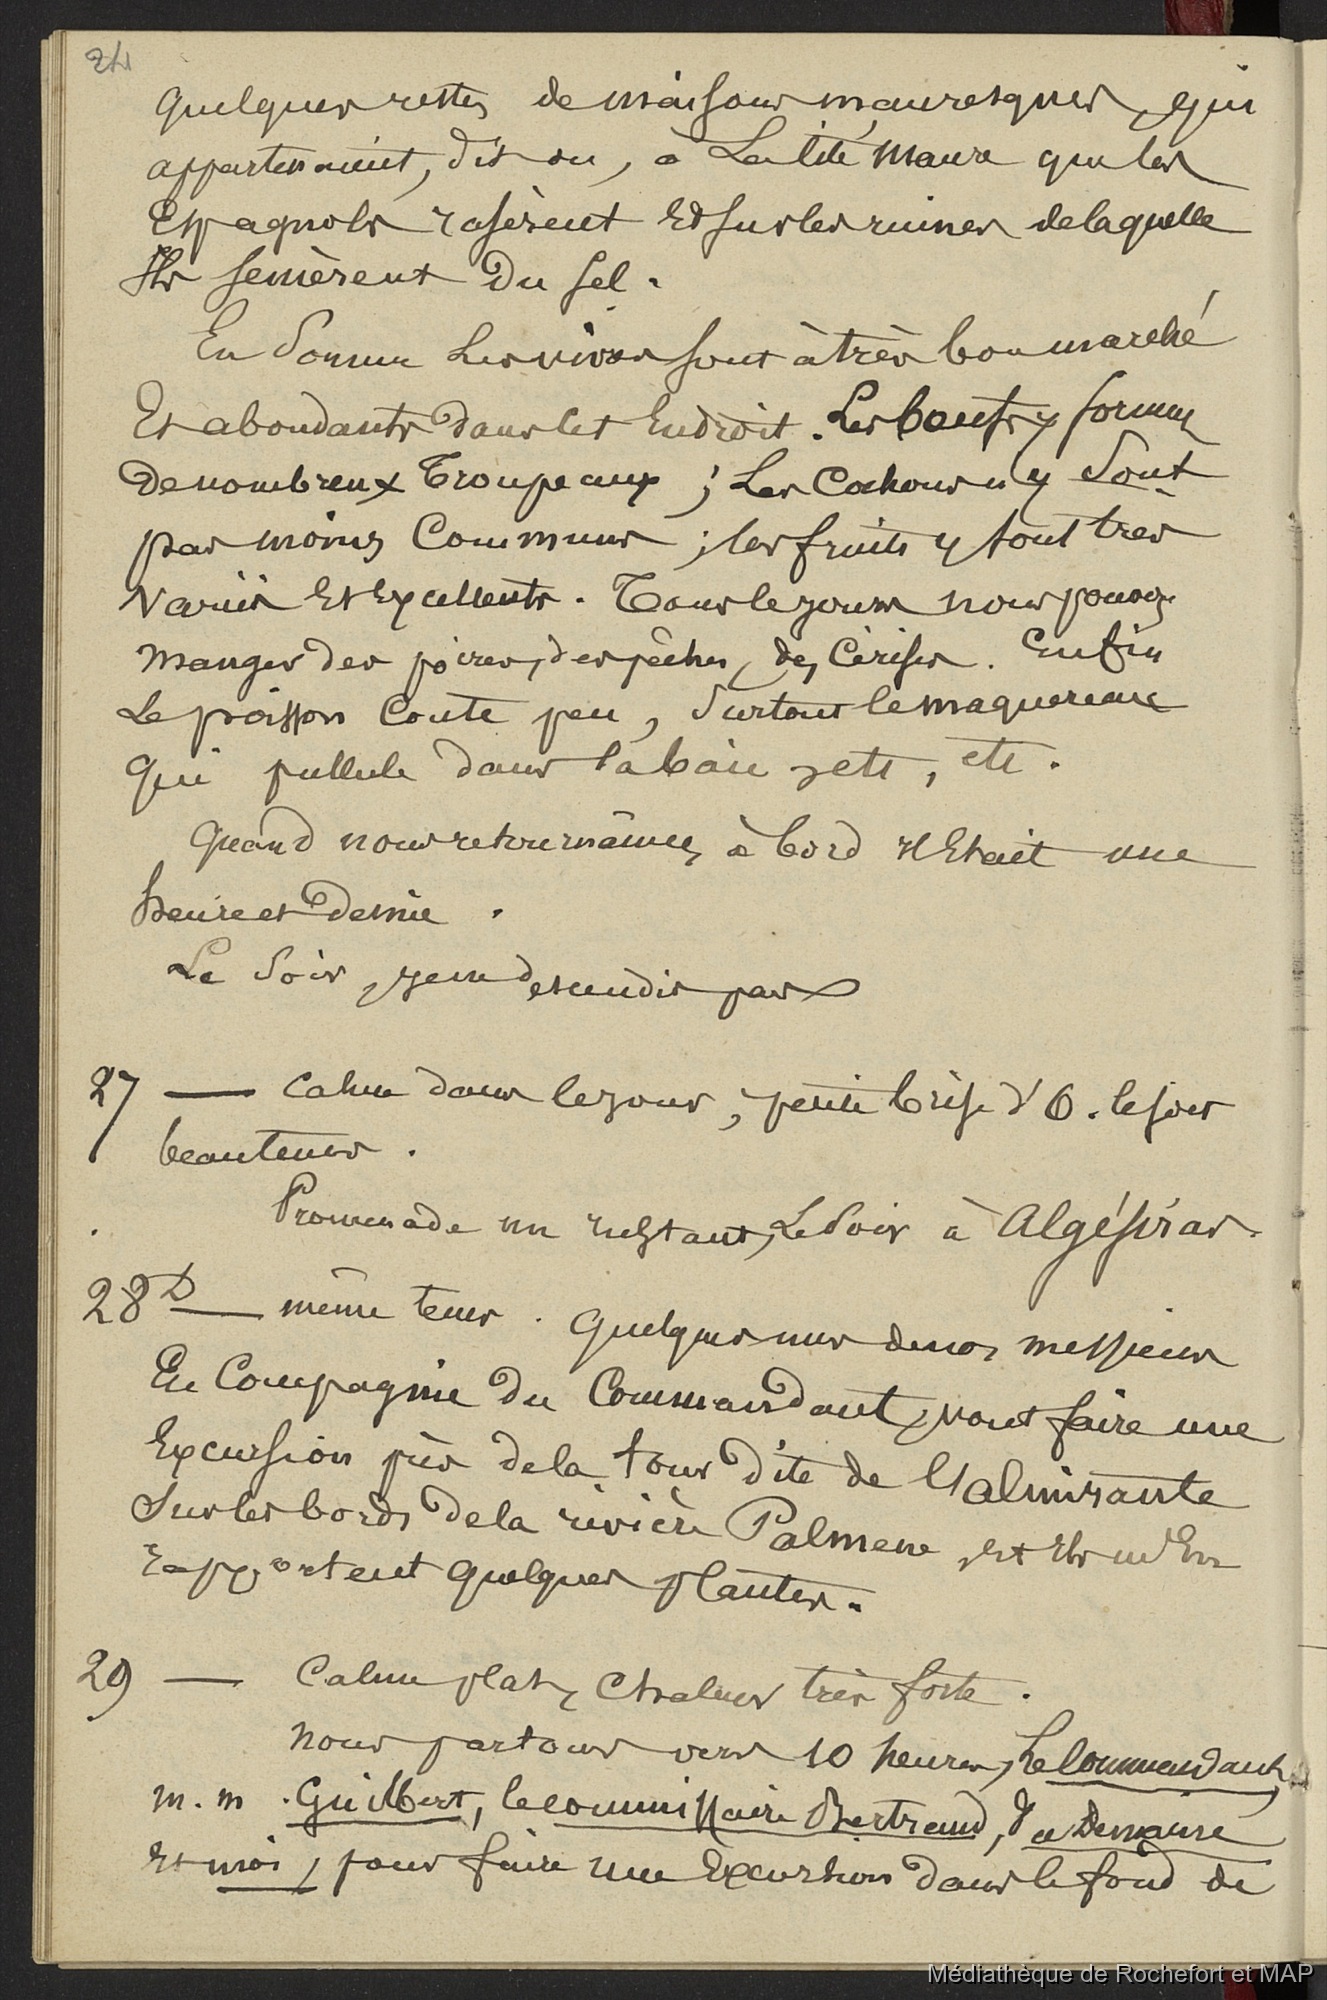 24
quelques restes de maisons mauresques, qui
appartenaient, dit on, à La Cité Maure que les
Espagnols rasèrent Et sur les ruines de laquelle
Ils semèrent du sel.
En Somme Les vivres sont à très bon marché
Et abondants dans cet Endroit. Les boeufs y forment
de nombreux Troupeaux ; Les Cochons n'y Sont
pas moins Communs ; les fruits y sont très
variés Et Excellents. Tous les jours nous pouvons
manger des poires, des pêches, des Cérises. Enfin
Le poisson Coute peu, Surtout le maquereau
qui pullule dans la baie, etc, etc.
Quand nous retournâmes à bord Il Etait une
heure et demie.
Le Soir, je ne descendis pas
27 — Calme dans le jour, petite brise d'O. le soir
beau tems.
Promenade un Instant, Le Soir à Algésiras.
28 D — même tems. Quelques uns de nos messieurs
En Compagnie du Commandant, vont faire une
Excursion près de la tour dite de l'almirante
Sur les bords de la rivière Palmone, et Ils m'En
rapportent quelques plantes.
29 — Calme plat, Chaleur très forte.
Nous partons vers 10 heures, Le Commandant,
m. m. Guilbert, le commissaire Bertrand,
Et moi, pour faire une Excursion dans le fond de
Médiathèque de Rochefort et MAP